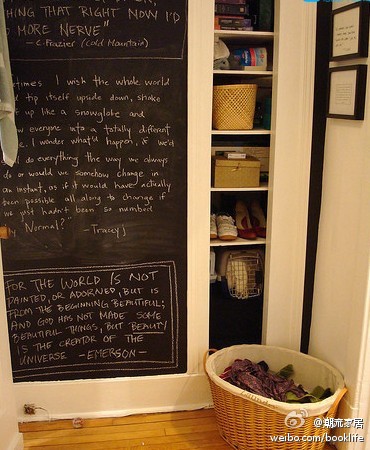 HING THAT RIGHT NOW I'D
MORE NERVE"
- C. Frazier (Cold Mountain)
times I wish the whole world
d tip itself upside down, shake
f up like a snowglobe and
w everyone into a totally different
e. I wonder what'd happen, if we'd
do everything the way we always
do or would we somehow change in
an instant, as if it would have actually
been possible all along to change if
we just hadn't been so numbed
by Normal?"
- Tracey J
FOR THE WORLD IS NOT
PAINTED, OR ADORNED, BUT IS
FROM THE BEGINNING BEAUTIFUL;
AND GOD HAS NOT MADE SOME
BEAUTIFUL THINGS, BUT BEAUTY
IS THE CREATOR OF THE
UNIVERSE - EMERSON -
@潮流家居
weibo.com/booklife